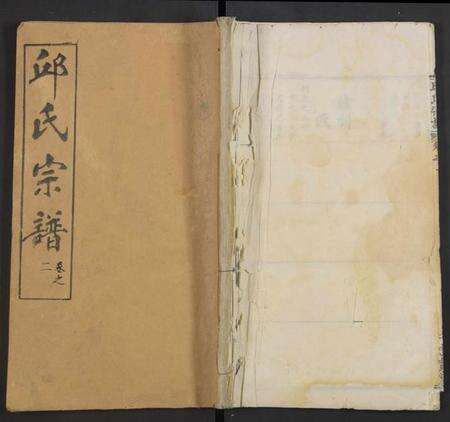 邱氏宗譜
卷之二